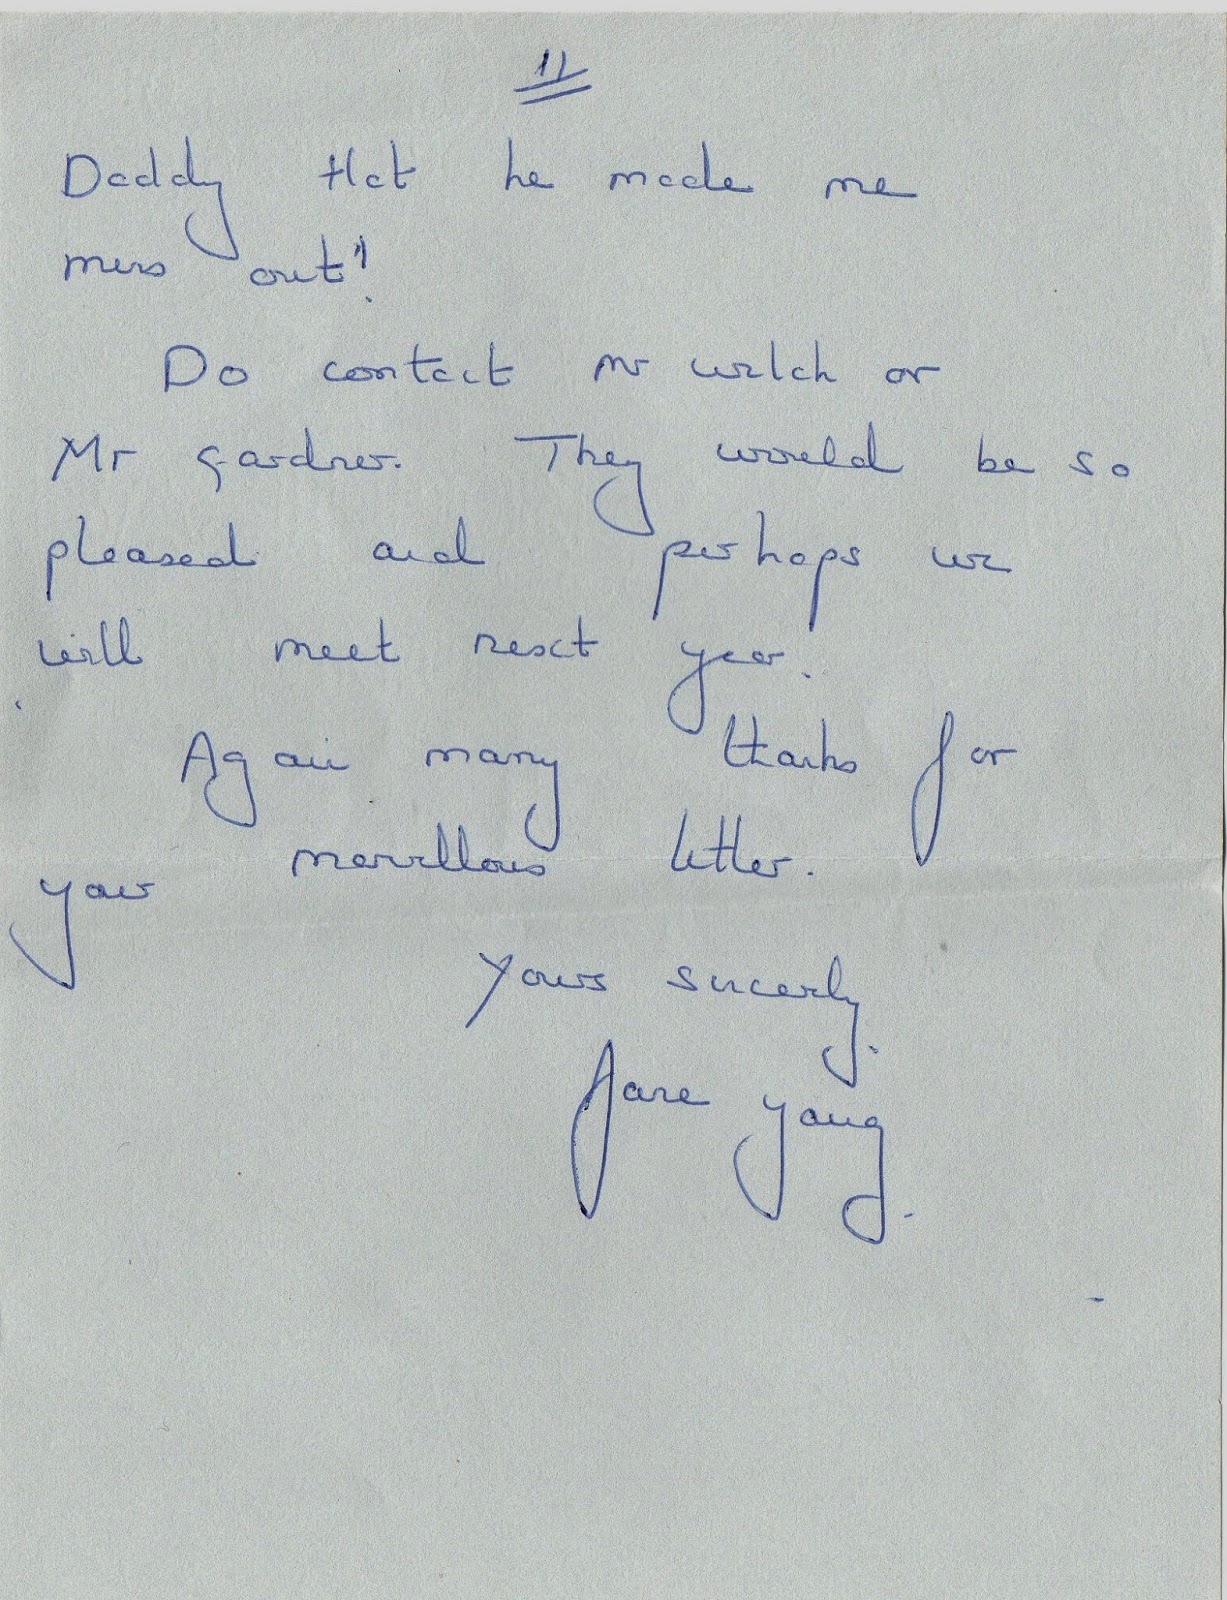 11
Daddy that he made me
miss out!
Do contact Mr Welch or
Mr Gardner. They would be so
pleased and perhaps we
will meet next year.
Again many thanks for
your marvellous letter.
Yours sincerly.
Jane Young.